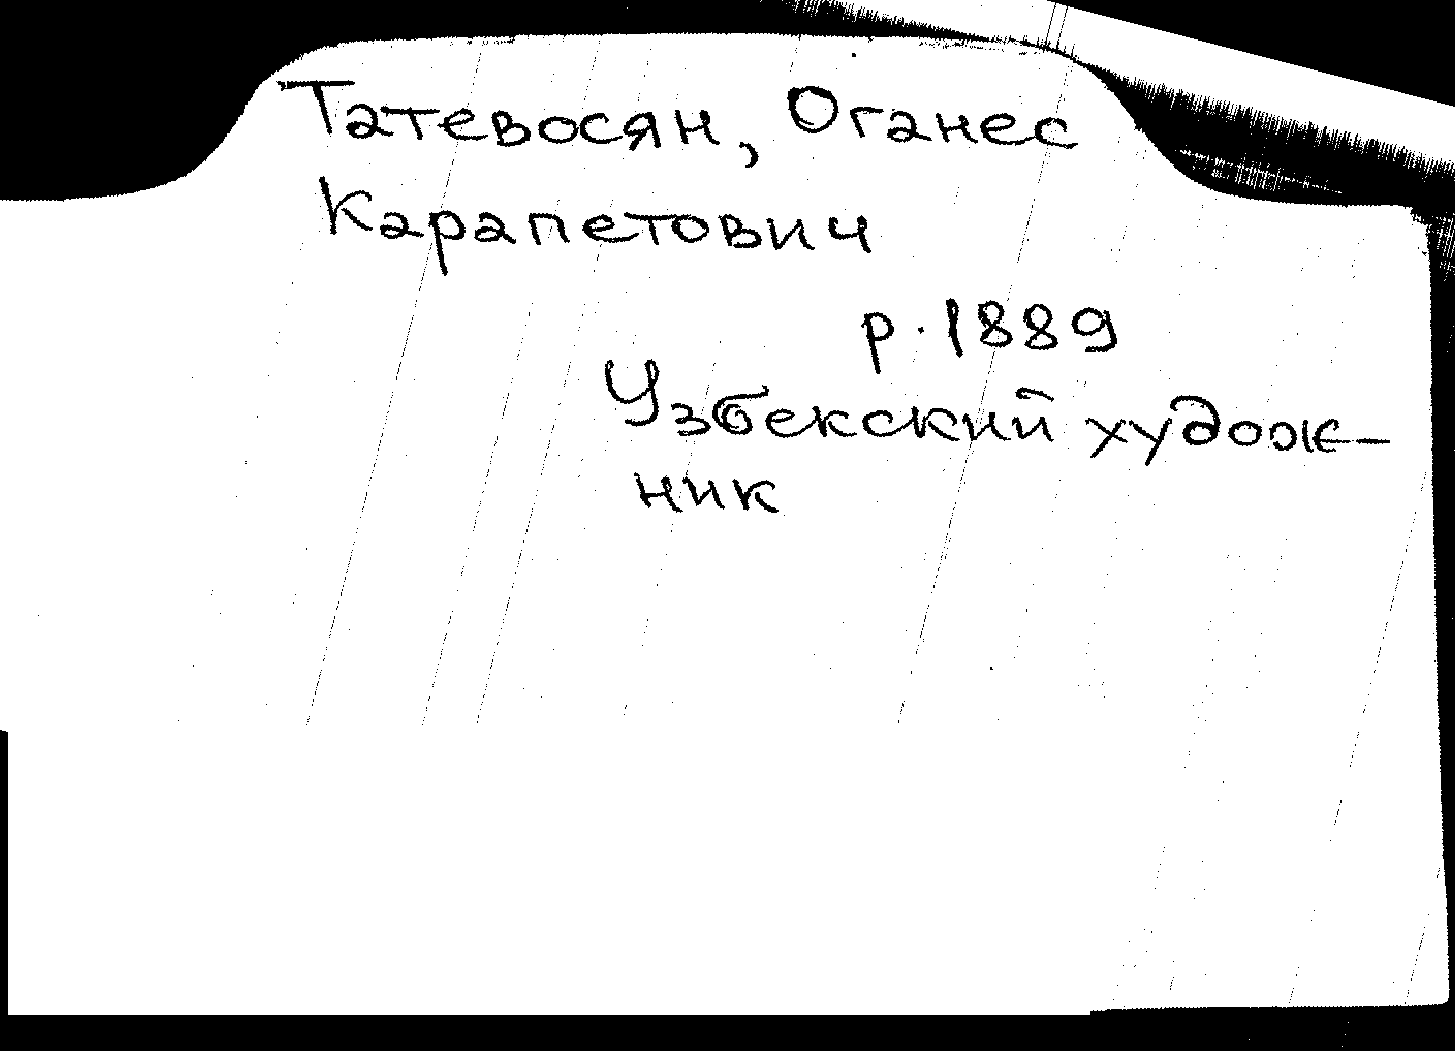 Татевосян, Оганес
Карапетович
р. 1889
Узбекский худож-
ник